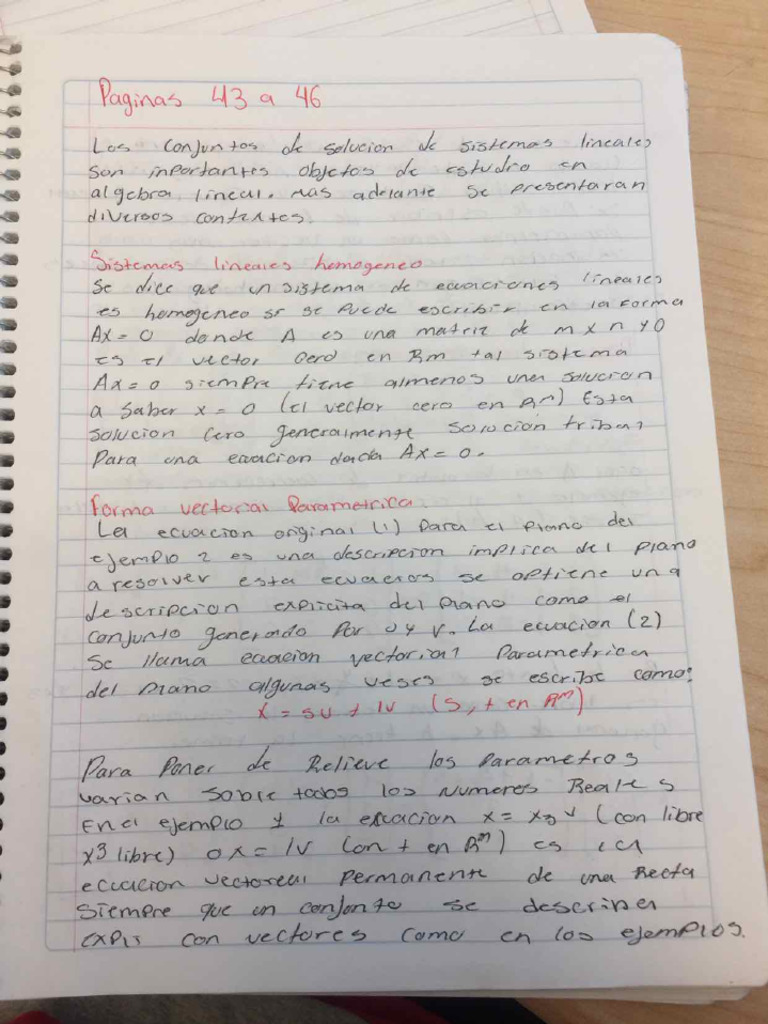 Paginas 43 a 46
Los conjuntos de solucion de sistemas lineales
son inportantes objetos de estudio en
algebra lineal. Mas adelante se presentaran
diversos contextos.
Sistemas lineales homogeneo
Se dice que un sistema de ecuaciones lineales
es homogeneo si se puede escribir en la forma
Ax = 0 donde A es una matriz de m x n y 0
es el vector cero en Rm tal sistema
Ax = 0 siempre tiene almenos una solucion
a saber x = 0 (el vector cero en Rⁿ) Esta
solucion cero generalmente solucion
Para una ecuacion dada Ax = 0.
Forma vectorial Parametrica
La ecuacion original (1) Para el Plano del
ejemplo 2 es una descripcion implica del plano
a resolver esta se optiene una
descripcion explicita del plano como el
conjunto generado por u y v. La ecuacion (2)
Se llama ecuacion vectorial Parametrica
del plano algunas veses se escribe como:
x = su + tv (s, t en Rⁿ)
Para Poner de Relieve los Parametros
varian sobre todos los Numeros Reales
En el ejemplo 1 la ecuacion x = x3 v (con libre
x3 libre) o x = tv (con t en Rⁿ) es
ecuacion vectoreal permanente de una Recta
Siempre que un conjunto se
con vectores como en los ejemplos.